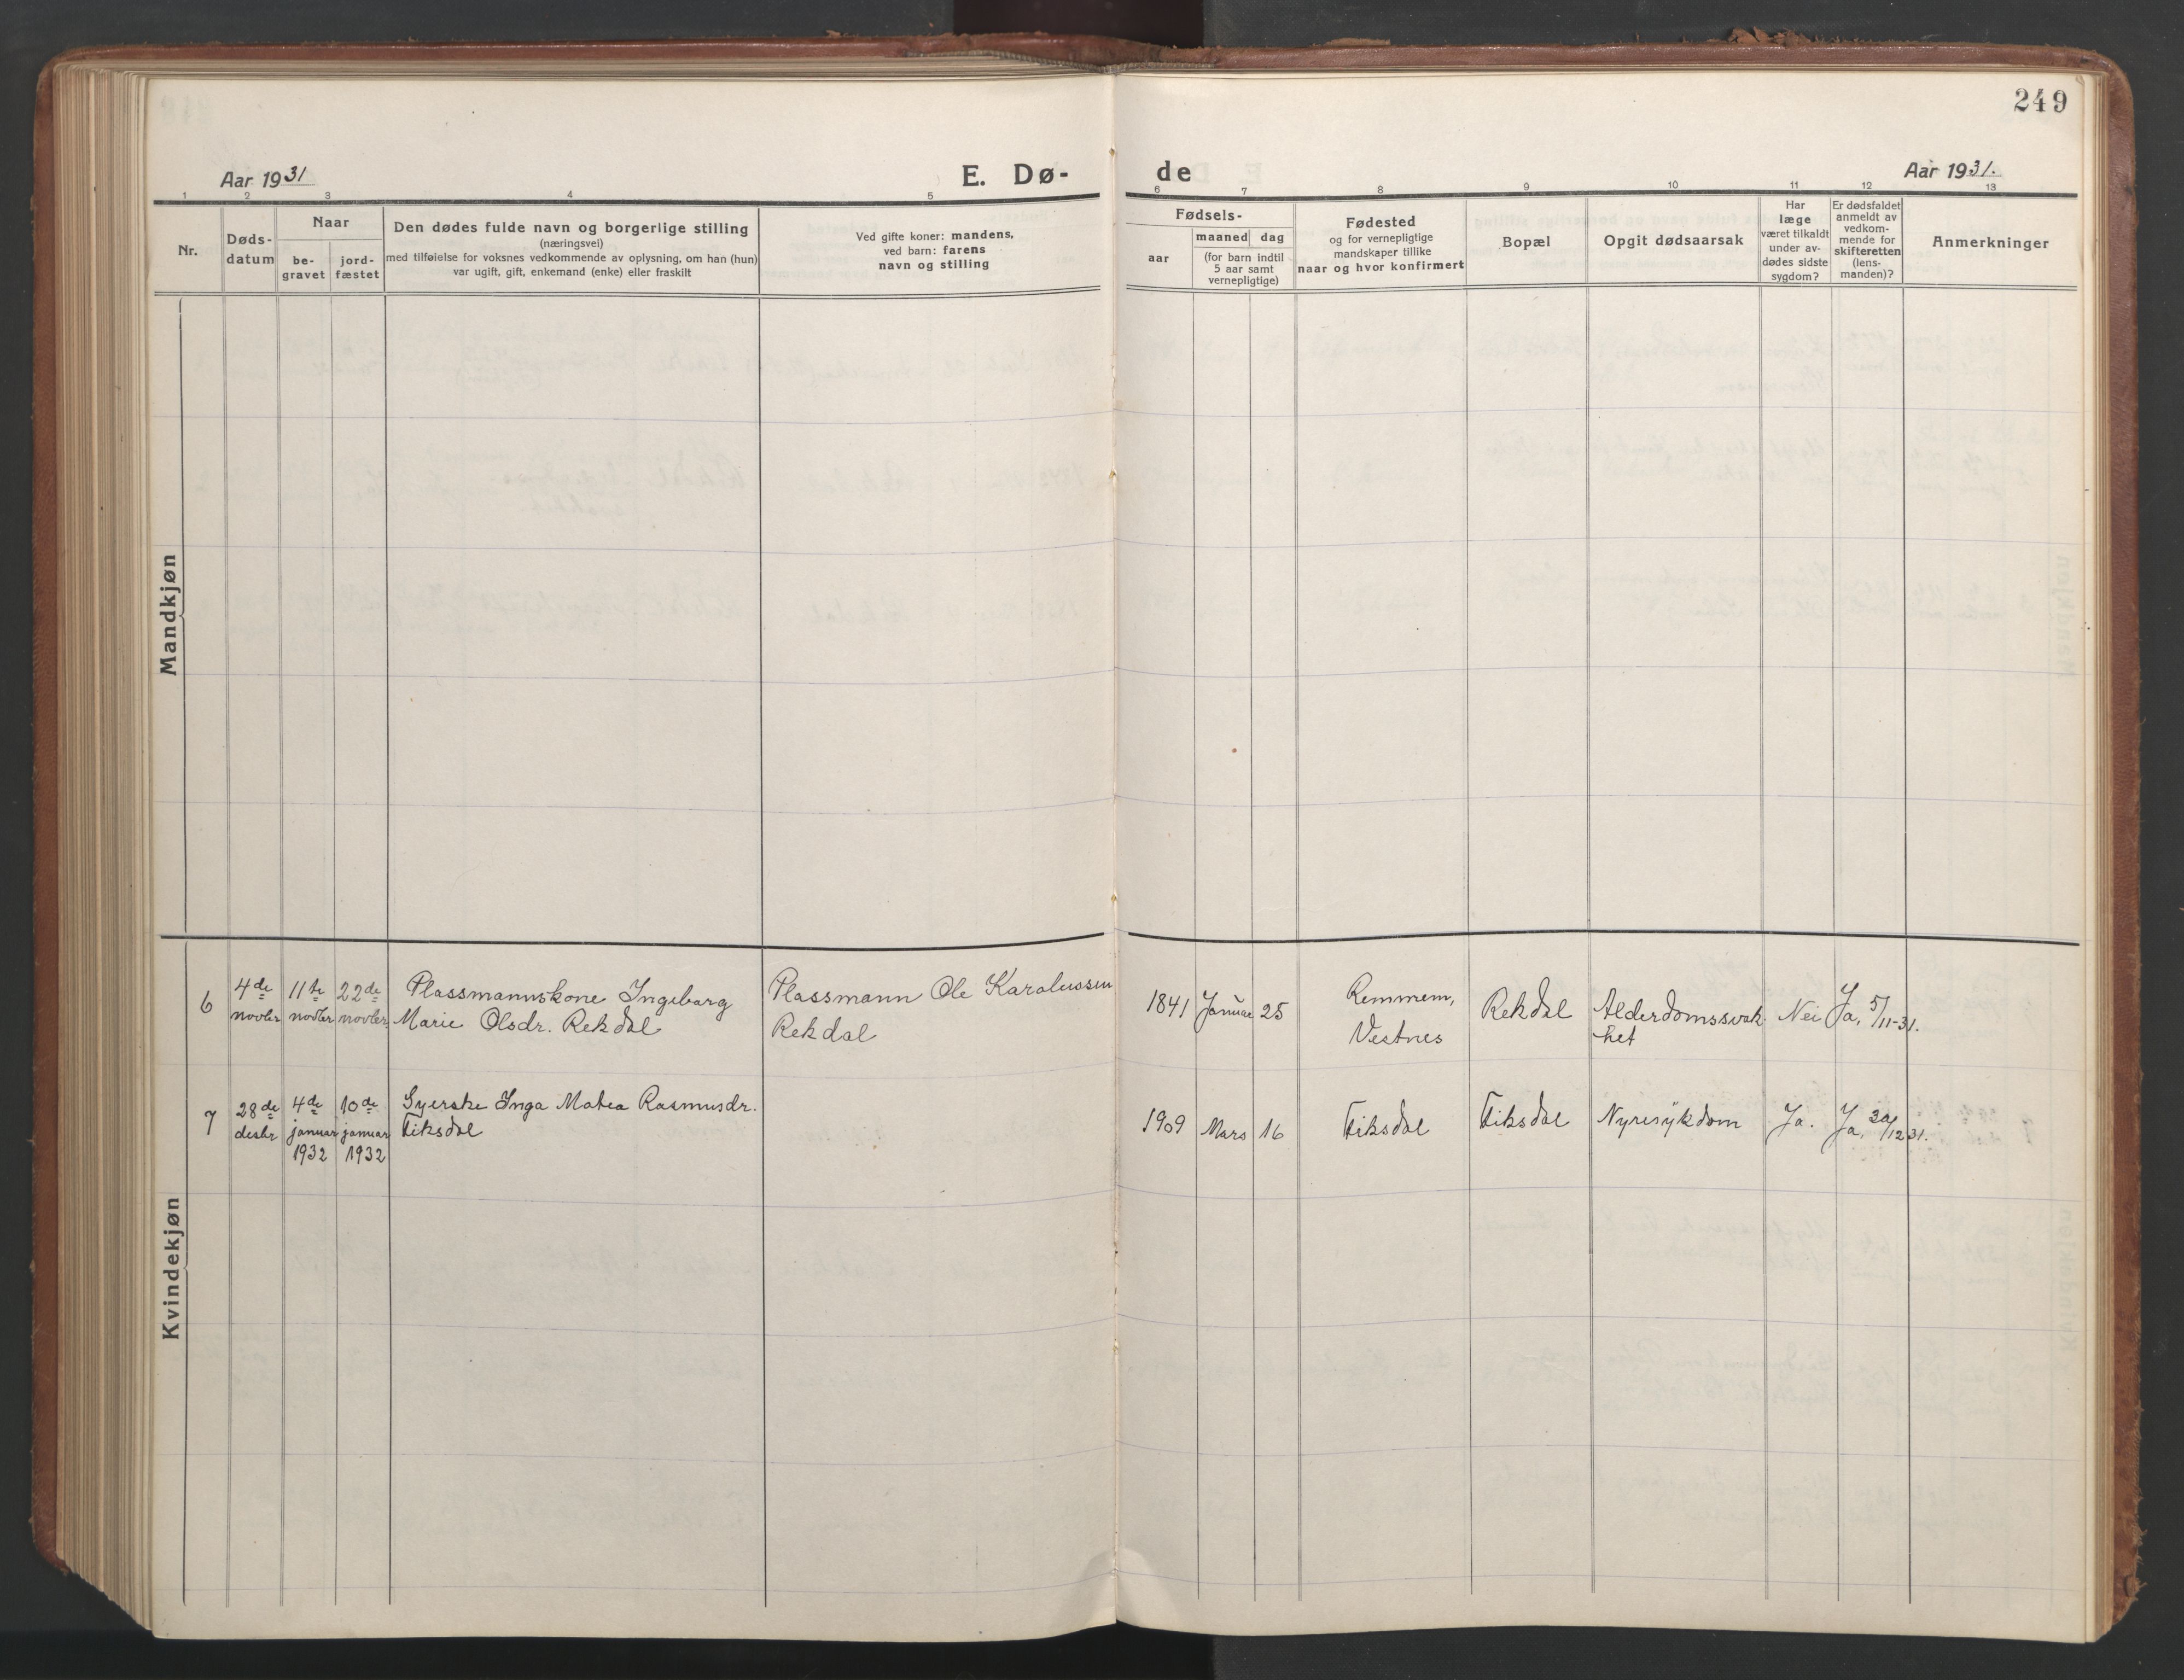 249
Aar 1931
E. Dø-
de
Aar 1931.
1 2 3 4 5 6 7 8 9 10 11 12 13
Nr.
Døds-
datum
Naar
be-
gravet
jord-
fæstet
Den dødes fulde navn og borgerlige stilling
(næringsvei)
med tilføielse for voksnes vedkommende av oplysning, om han (hun)
var ugift, gift, enkemand (enke) eller fraskilt
Ved gifte koner: mandens,
ved barn: farens
navn og stilling
Fødsels-
aar
maaned dag
(for barn indtil
5 aar samt
vernepligtige)
Fødested
og for vernepligtige
mandskaper tillike
naar og hvor konfirmert
Bopæl
Opgit dødsaarsak
Har
læge
været tilkaldt
under av-
dødes sidste
sygdom?
Er dødsfaldet
anmeldt av
vedkom-
mende for
skifteretten
(lens-
manden)?
Anmerkninger
Mandkjøn
Kvindekjøn
6
4de
novbr
11te
novbr
22de
novbr
Plassmannskone Ingeborg
Marie Olsdr. Rekdal
Plassmann Ole Karolussen
Rekdal
1841 Januar 25
Remmem,
Vestnes
Rekdal
Alderdomssvak
het
Nei
Ja, 5/11-31.
7
28de
desbr
4de
januar
1932
10de
januar
1932
Syerske Inga Matea Rasmusdr.
Fiksdal
1909 Mars 16
Fiksdal
Fiksdal
Nyresykdom
Ja.
Ja, 30/12 31.